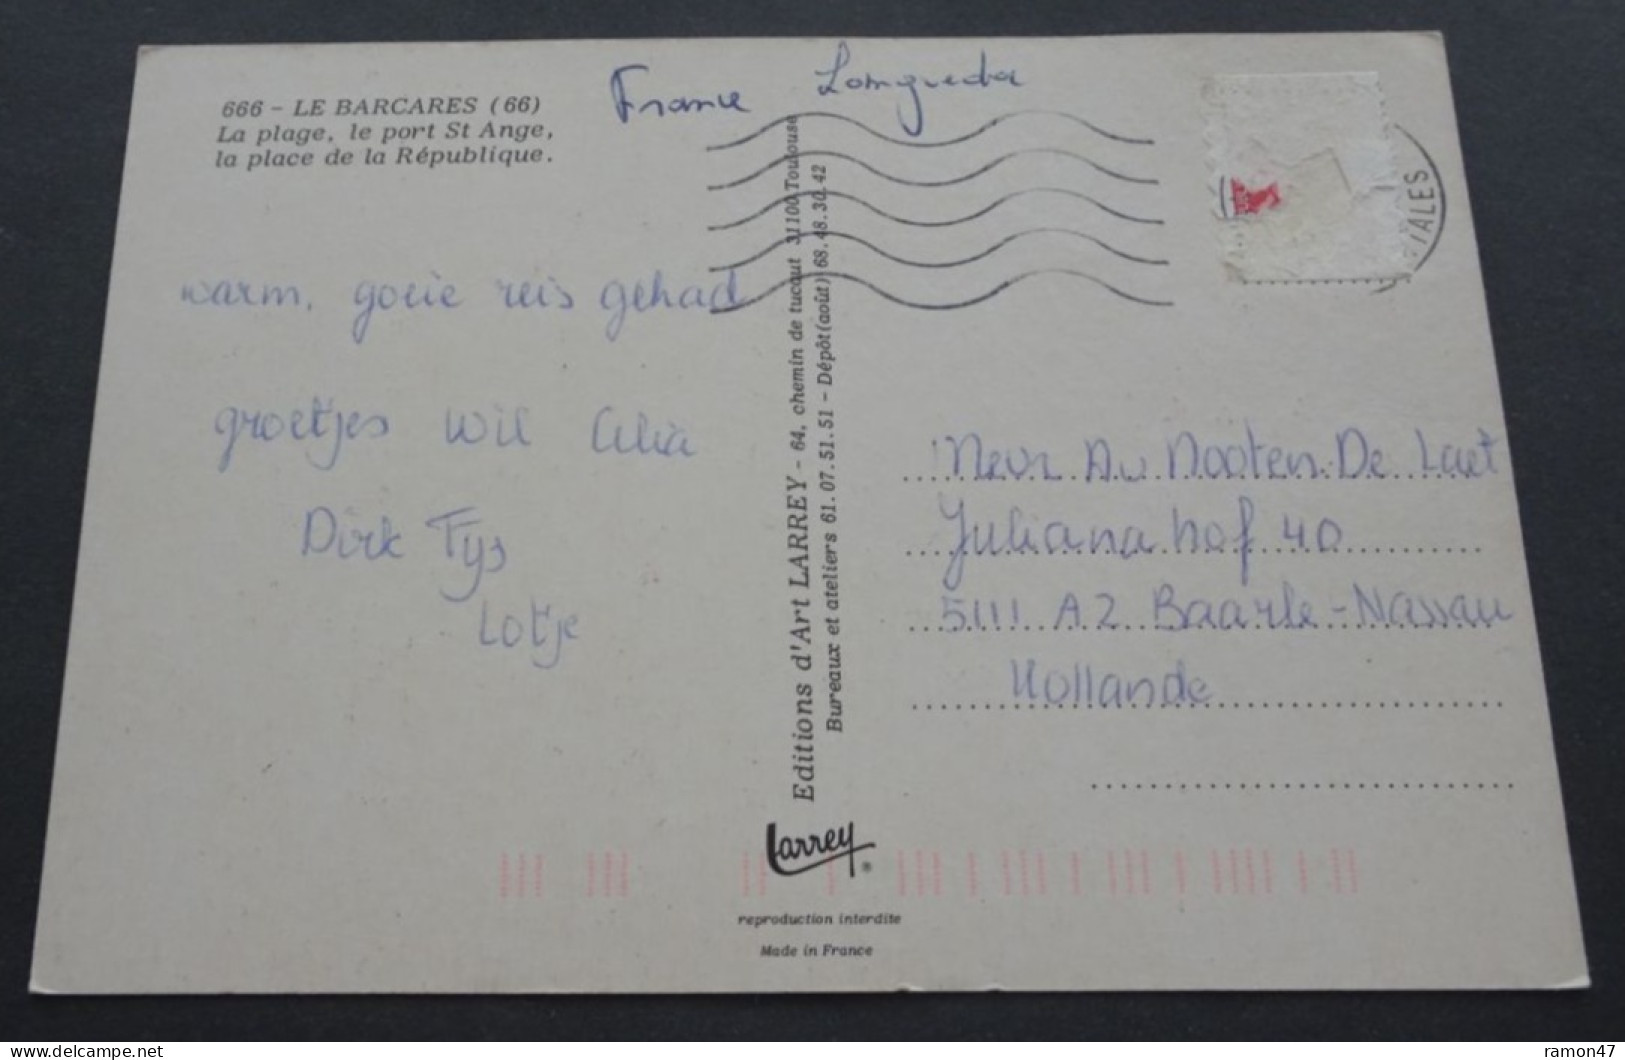 666 - LE BARCARES (66)
La plage, le port St Ange,
la place de la République.
France
warm, goeie reis gehad
groetjes Wil Celia
Dirk Tys
Lotje
Editions d'Art LARREY - 64, chemin de tucaut 31100 Toulouse
Bureaux et ateliers 61.07.51.51 - Dépôt (août) 68.48.30.42
IALES
Mevr Av Nooten De Laet
Julianahof 40
5111 AZ Baarle-Nassau
Hollande
Larrey ®
reproduction interdite
Made in France
delcampe.net
ramon47